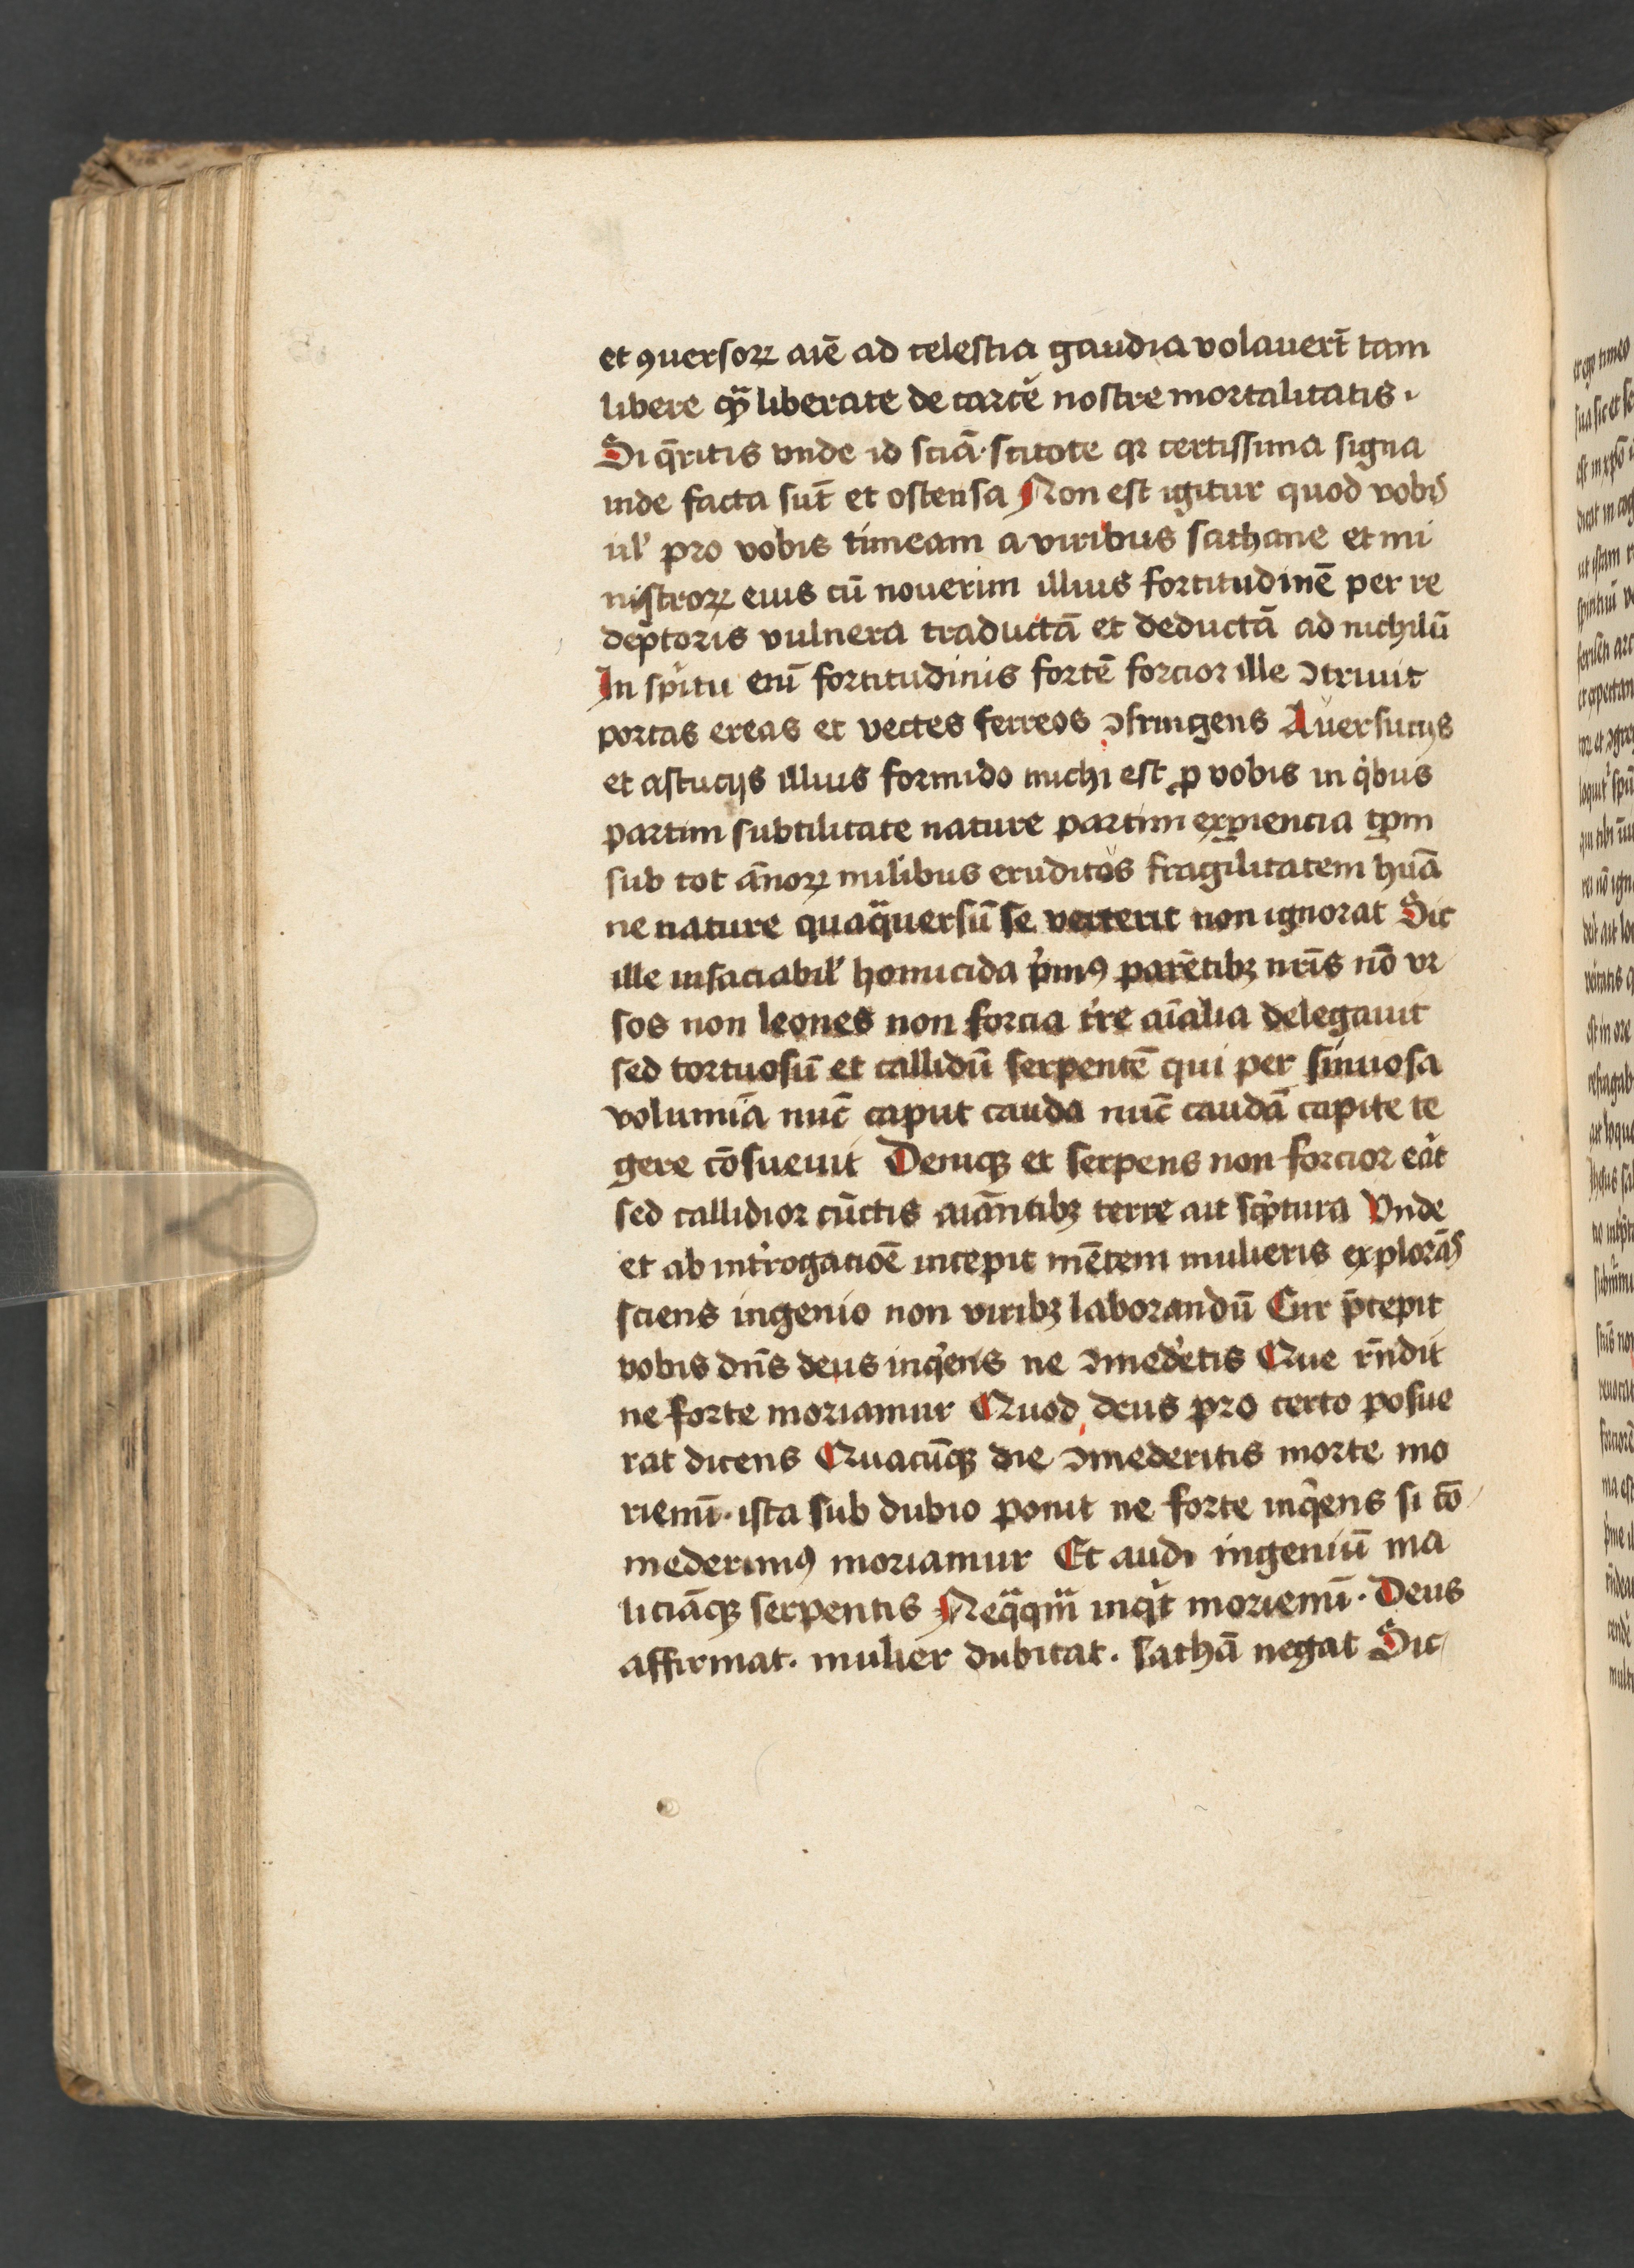 et ꝯuersoꝝ aīe ad celestia gaudia volauer̄t tam
libere qͣ̄ liberate de carcẽ nostre mortalitatis ·
Si q̄ritis vnde id sciā · scitote qꝛ certissima signa
inde facta sūt et ostensa Non est igitur quod vobis
ul̓ pro vobis timeam a viribus sathane et mi
nistroꝝ eius cū nouerim illius fortitudinē per re
dēptoris vulnera traductā et deductā ad nichilū
In spiritu enī fortitudinis fortē forcior ille ↄtriuit
portas ereas et vectes ferreos ↄfringens A versucijs
et astucijs illius formido michi est ꝓ vobis in qͥbus
partim subtilitate nature partim exꝑiencia tꝑm
sub tot ānoꝝ milibus eruditos fragilitatem huā
ne nature quaqͣuersū se verterit non ignorat Sic
ille insaciabil̓ homicida pͥmꝰ parētibꝫ nr̄is nō vr
sos non leones non forcia tr̓re aīalia delegauit
sed tortuosū et callidū serpentē qui per sinuosa
volumīa nūc caput cauda nūc caudā capite te
gere cōsueuit Deniqꝫ et serpens non forcior erāt
sed callidior cūctis aiātibꝫ terre ait scͥptura Vnde
et ab int̓rogatiōe incepit mētem mulieris explorās
sciens ingenio non viribꝫ laborandū Cur p̄cepit
vobis dn̄s deus inqͥens ne ↄmed̓etis Que rn̄dit
ne forte moriamur Quod deus pro certo posue
rat dicens Quacūqꝫ die ↄmederitis morte mo
riemī · ista sub dubio ponit ne forte inqͥens si cō
mederimꝰ moriamur Et audi ingeniū ma
liciāqꝫ serpentis Neqͣqͣm̄ inqͥt moriemī · Deus
affirmat · mulier dubitat · sathā negat Sic